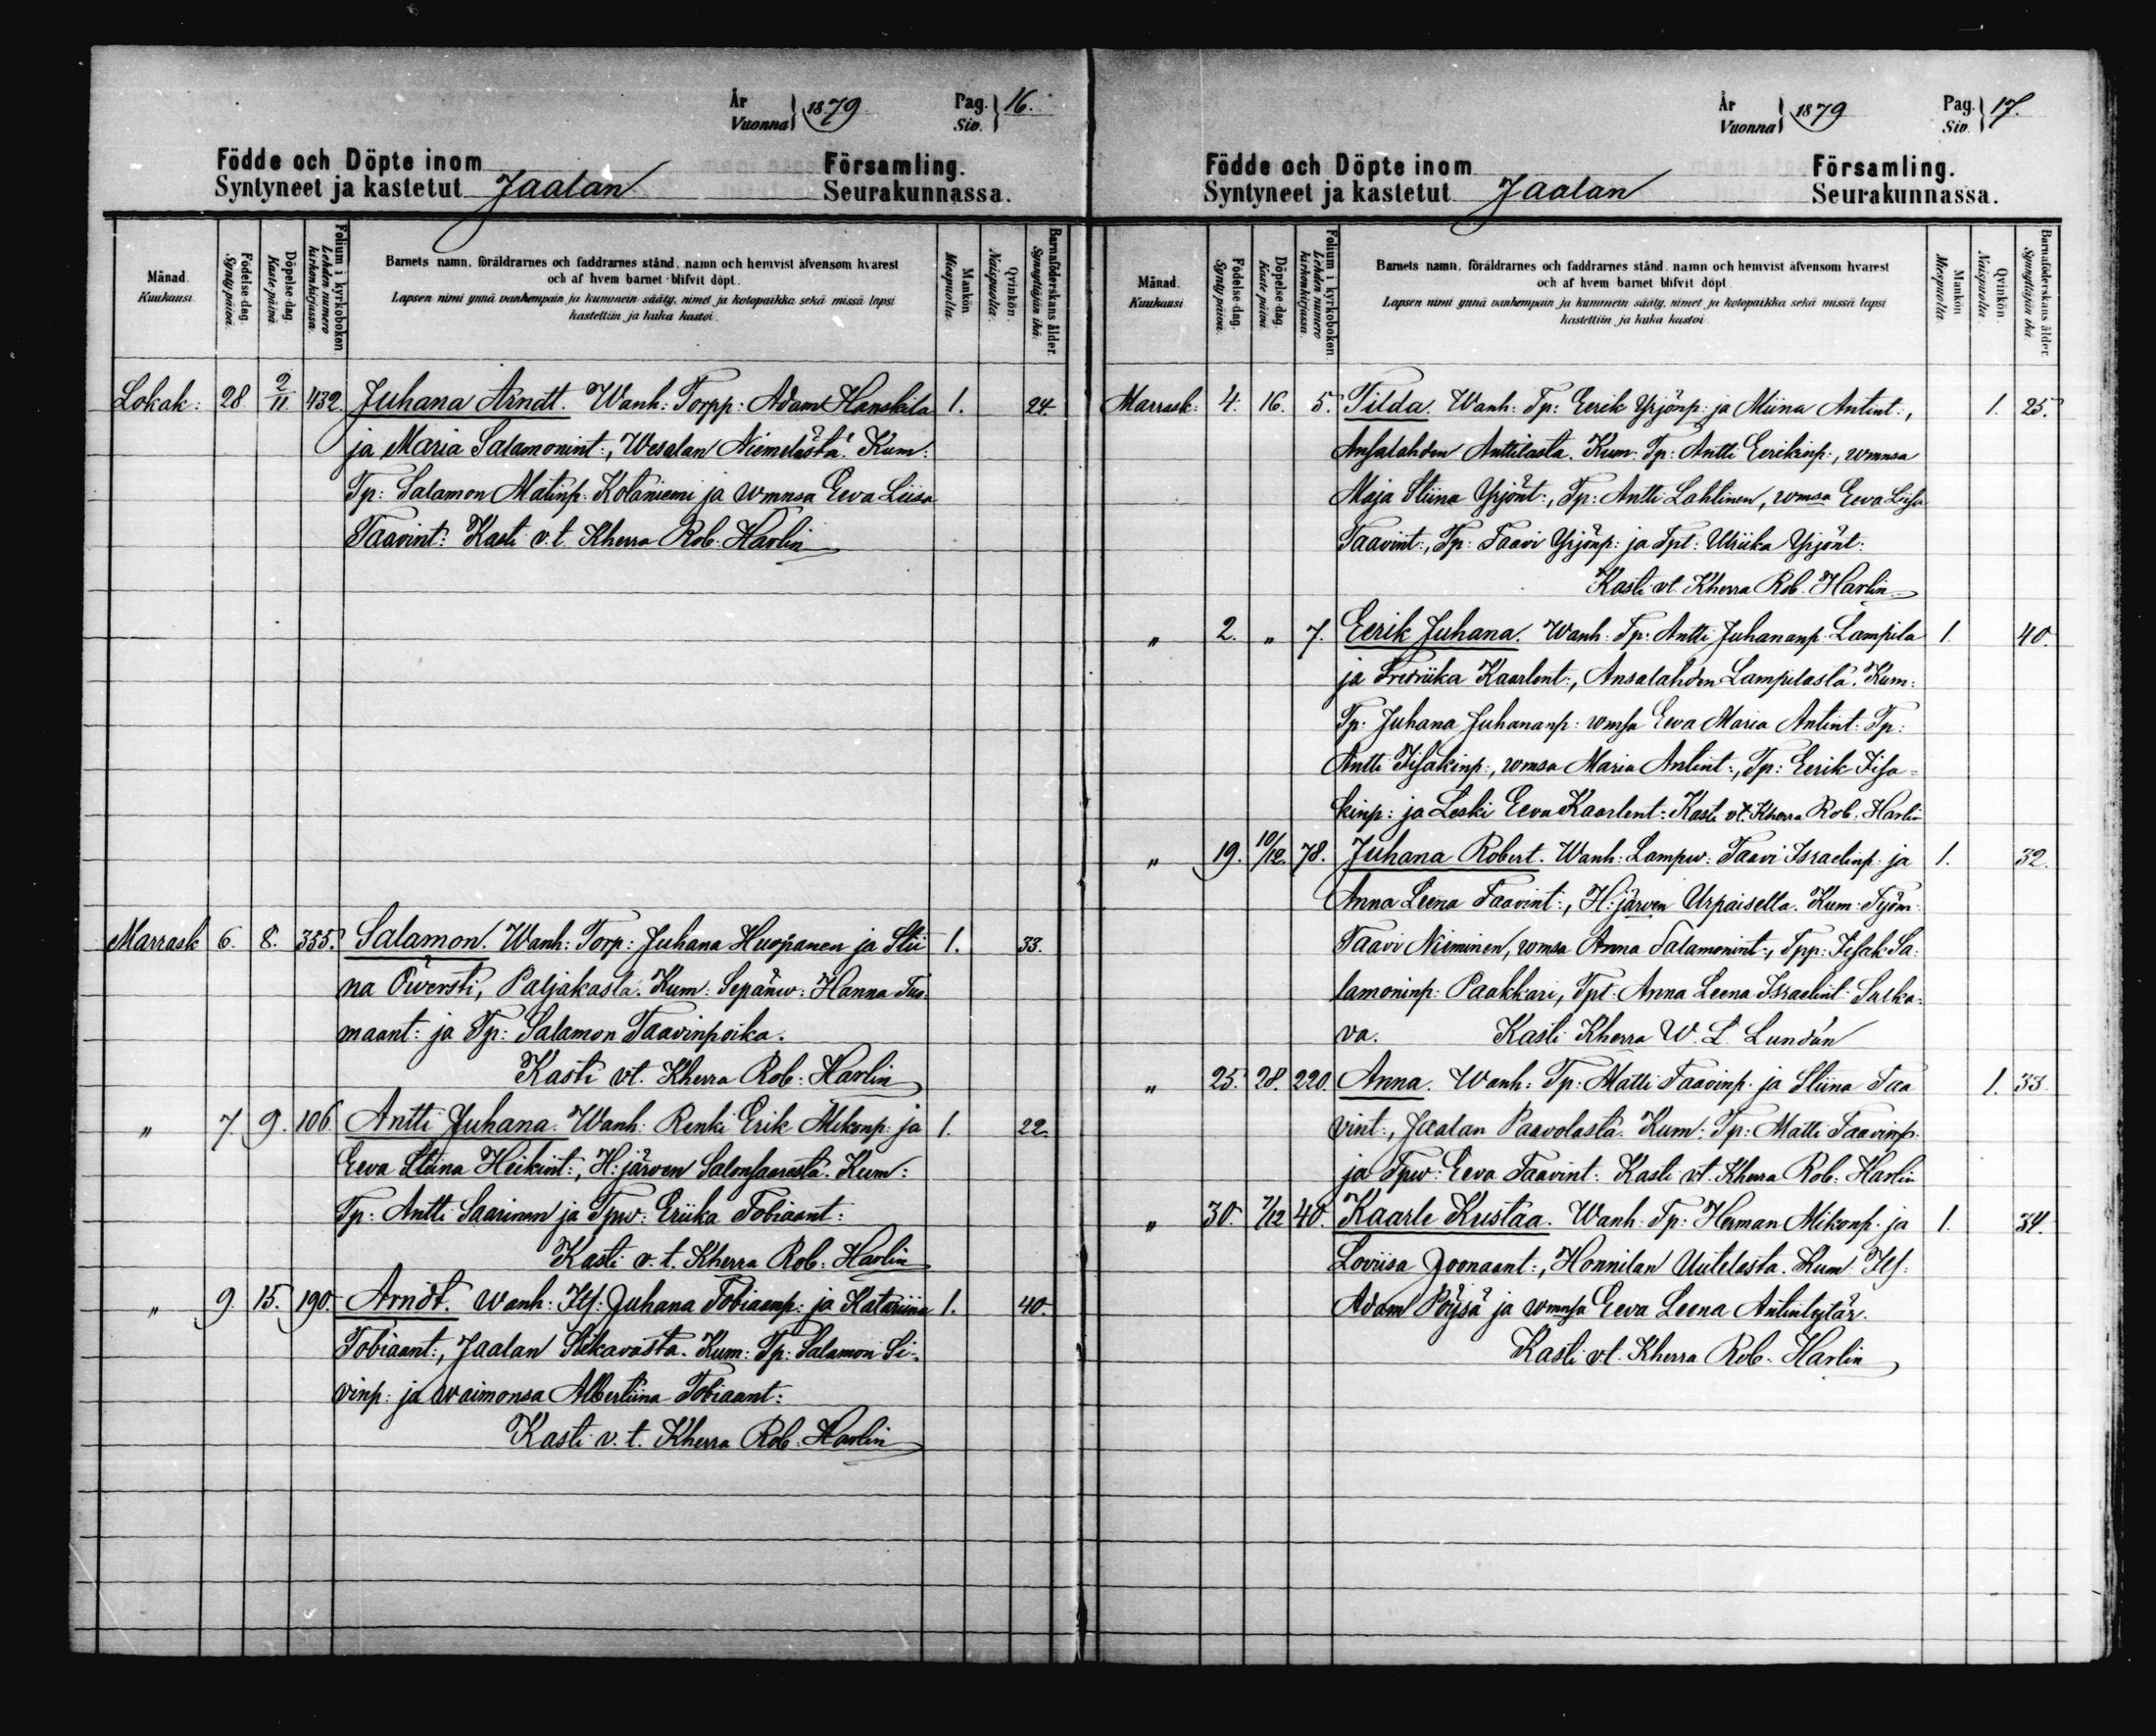 År
Vuonna } 1879 Pag. Siv. } 16.
Födde och Döpte inom Församling.
Syntyneet ja kastetut Jaalan Seurakunnassa.
Månad. Kuukausi.
Födelse dag. Synty päivä.
Döpelse dag. Kaste päivä
Folium i kyrkoboken. Lehden numero kirkonkirjassa.
Barnets namn, föräldrarnes och faddrarnes stånd, namn och hemvist äfvensom hvarest
och af hvem barnet blifvit döpt.
Lapsen nimi ynnä vanhempain ja kummein sääty, nimet ja kotopaikka sekä missä lapsi
kastettiin ja kuka kastoi.
Mankön. Miespuolia.
Qvinkön. Naispuolia.
Barnaföderskans ålder. Synnyttäjän ikä.
Lokak: 28 2/11. 432. Juhana Arndt. Wanh: Torpp: Adam Hanskila 1. 24.
ja Maria Salamonint:, Weralan Niemelästä. Kum:
Tp: Salamon Matinp: Kotaniemi ja wmnsa Eeva Liisa
Taavint: Kasti v.t. Kherra Rob. Harlin
Marrask 6. 8. 355. Salamon. Wanh: Torp: Juhana Huopanen ja Stii 1. 33.
na Öwersti, Paljakasta. Kum: Sepänw: Hanna Tuo
maant: ja Tp: Salamon Taavinpoika.
Kasti vt. Kherra Rob: Harlin
„ 7. 9. 106. Antti Juhana. Wanh: Renki Erik Mikonp: ja 1. 22.
Eeva Stiina Heikint:, H:järven Salonsaaresta. Kum:
Tp: Antti Saarinen ja Tpw: Eriika Tobiaant:
Kasti v.t. Kherra Rob: Harlin
„ 9. 15. 190. Arndt. Wanh: Itf: Juhana Tobiaanp: ja Katariina 1. 40.
Tobiaant:, Jaalan Siikavasta. Kum: Tp: Salamon Si-
vinp: ja waimonsa Albertiina Tobiaant:
Kasti v.t. Kherra Rob: Harlin
År
Vuonna } 1879 Pag. Siv. } 17.
Födde och Döpte inom Församling.
Syntyneet ja kastetut Jaalan Seurakunnassa.
Månad. Kuukausi.
Födelse dag. Synty päivä.
Döpelse dag. Kaste päivä.
Folium i kyrkoboken. Lehden numero kirkonkirjassa.
Barnets namn, föräldrarnes och faddrarnes stånd, namn och hemvist äfvensom hvarest
och af hvem barnet blifvit döpt.
Lapsen nimi ynnä vanhempain ja kummein sääty, nimet ja kotopaikka sekä missä lapsi
kastettiin ja kuka kastoi.
Mankön. Miespuolia.
Qvinkön. Naispuolia.
Barnaföderskans ålder. Synnyttäjän ikä.
Marrask: 4. 16. 5. Tilda. Wanh: Tp: Eerik Yrjönp: ja Miina Antint:, 1. 25.
Ansalahden Anttilasta. Kum: Tp: Antti Eerikinp:, wmnsa
Maja Stiina Yrjönt:, Tp: Antti Lahtinen, wmsa Eeva Liisa
Taavint:, Tp: Taavi Yrjönp: ja Tpt: Ulriika Yrjönt:
Kasti vt. Kherra Rob. Harlin
„ 2. „ 7. Eerik Juhana. Wanh: Tp: Antti Juhananp: Lampila 1. 40.
ja Fredriika Kaarlent:, Ansalahden Lampilasta. Kum:
Tp: Juhana Juhananp: wmsa Eeva Maria Antint: Tp:
Antti Iisakinp:, wmsa Maria Antint:, Tp: Eerik Iisa-
kinp: ja Leski Eeva Kaarlent: Kasti vt. Kherra Rob. Harlin
„ 19. 10/12. 78. Juhana Robert. Wanh: Lampw: Taavi Israelinp: ja 1. 32.
Anna Leena Taavint:, H:järven Urpaiselta. Kum: Työm:
Taavi Nieminen, wmsa Anna Salamonint:, Tpp: Iisak Sa-
lamoninp: Paakkari, Tpt: Anna Leena Israelint:
va. Kasti Kherra W. L. Lundán
„ 25. 28. 220. Anna. Wanh: Tp: Matti Taavinp: ja Stiina Taa 1. 33.
vint:, Jaalan Paavolasta. Kum: Tp: Matti Taavinp:
ja Tpw: Eeva Taavint: Kasti vt. Kherra Rob: Harlin
„ 30. 7/12 40. Kaarle Kustaa. Wanh: Tp: Herman Mikonp: ja 1. 34.
Loviisa Joonaant:, Honnilan Uutelasta. Kum: Itf:
Adam Pöysä ja wmnsa Eeva Leena Antintytär.
Kasti vt. Kherra Rob. Harlin